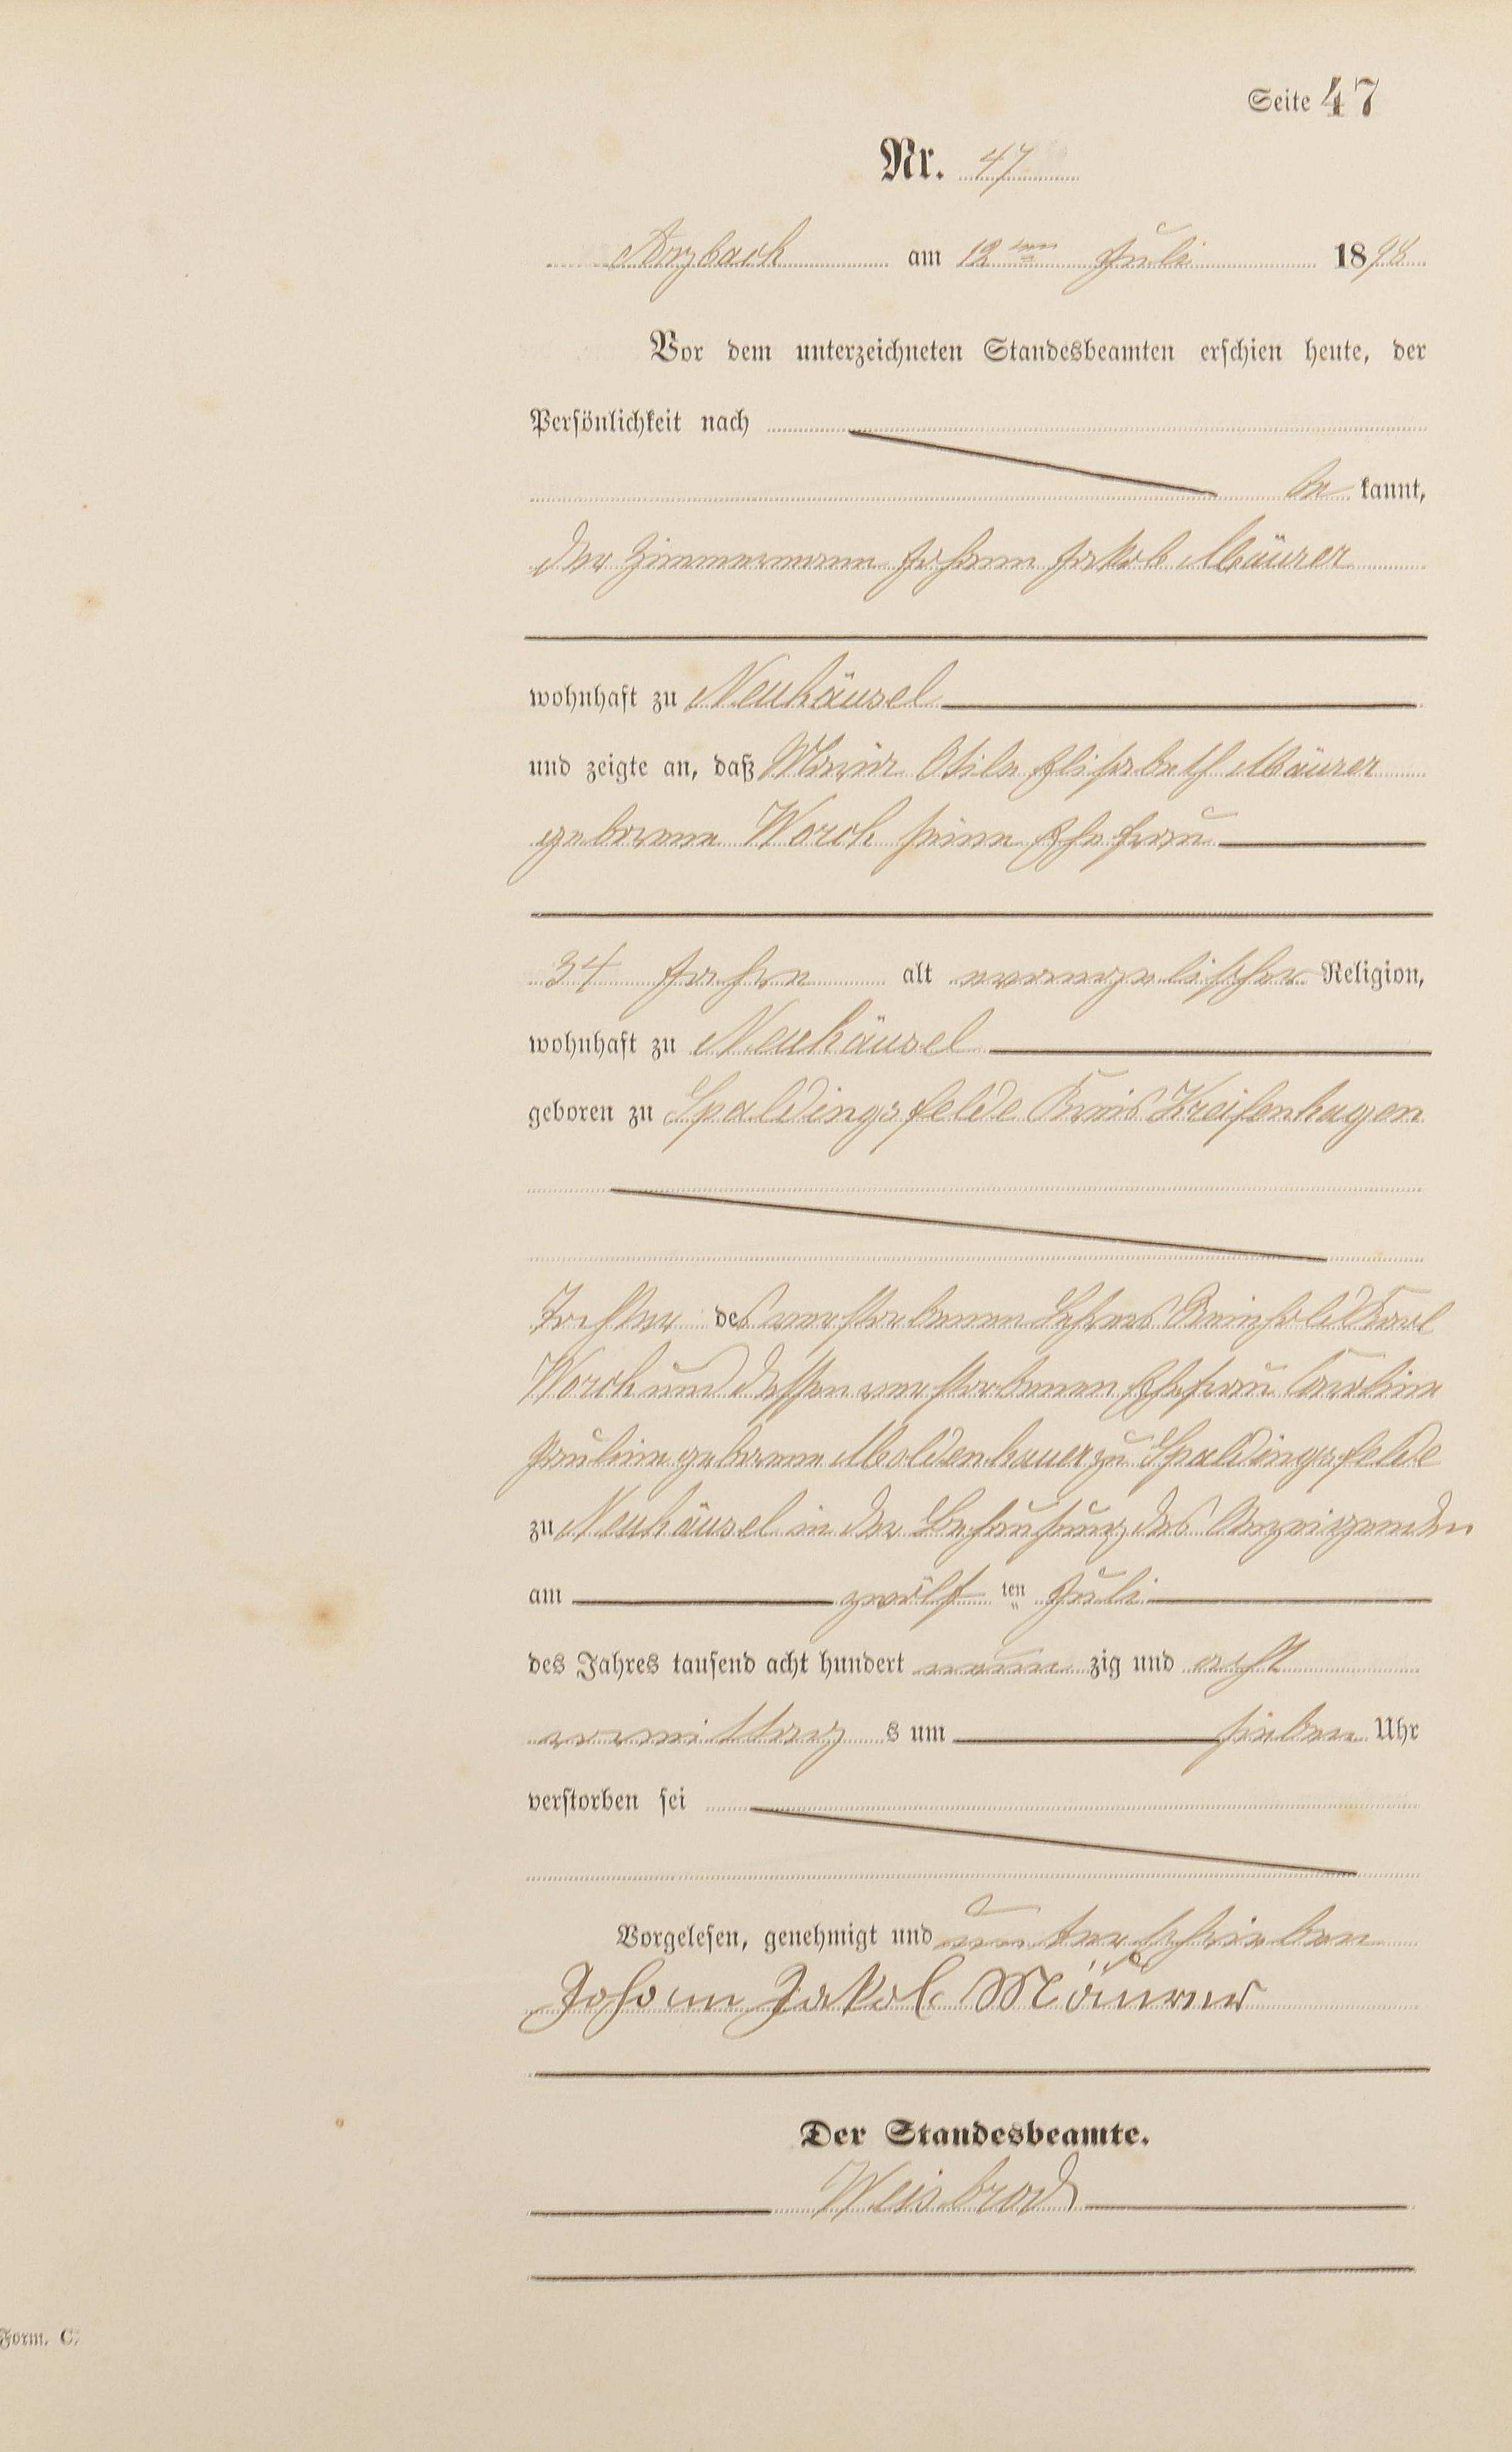 Seite 47
Nr. 47
Arzbach am 12ten Juli 1898
Vor dem unterzeichneten Standesbeamten erschien heute, der
Persönlichkeit nach
be kannt,
der Zimmermann Johann Jakob Mäurer
wohnhaft zu Neuhäusel
und zeigte an, daß Maria Otile Elisabeth Mäurer
geborene Worch seine Ehefrau
34 Jahre alt evangelischer Religion,
wohnhaft zu Neuhäusel
geboren zu Spaldingsfelde Kreis Kreifenhagen
Tochter des verstorbenen Lehrers Reinhold Karl
Worch und dessen verstorbenen Ehefrau Caroline
Pauline geborene Moldenhauer zu Spaldingsfelde
zu Neuhäusel in der Behausung des Anzeigenden
am zwölf ten Juli
des Jahres tausend acht hundert neun zig und acht
vormittag s um sieben Uhr
verstorben sei
Vorgelesen, genehmigt und unterschrieben
Johann Jakob Mäurer
Der Standesbeamte.
Weisbrod
Form. C.